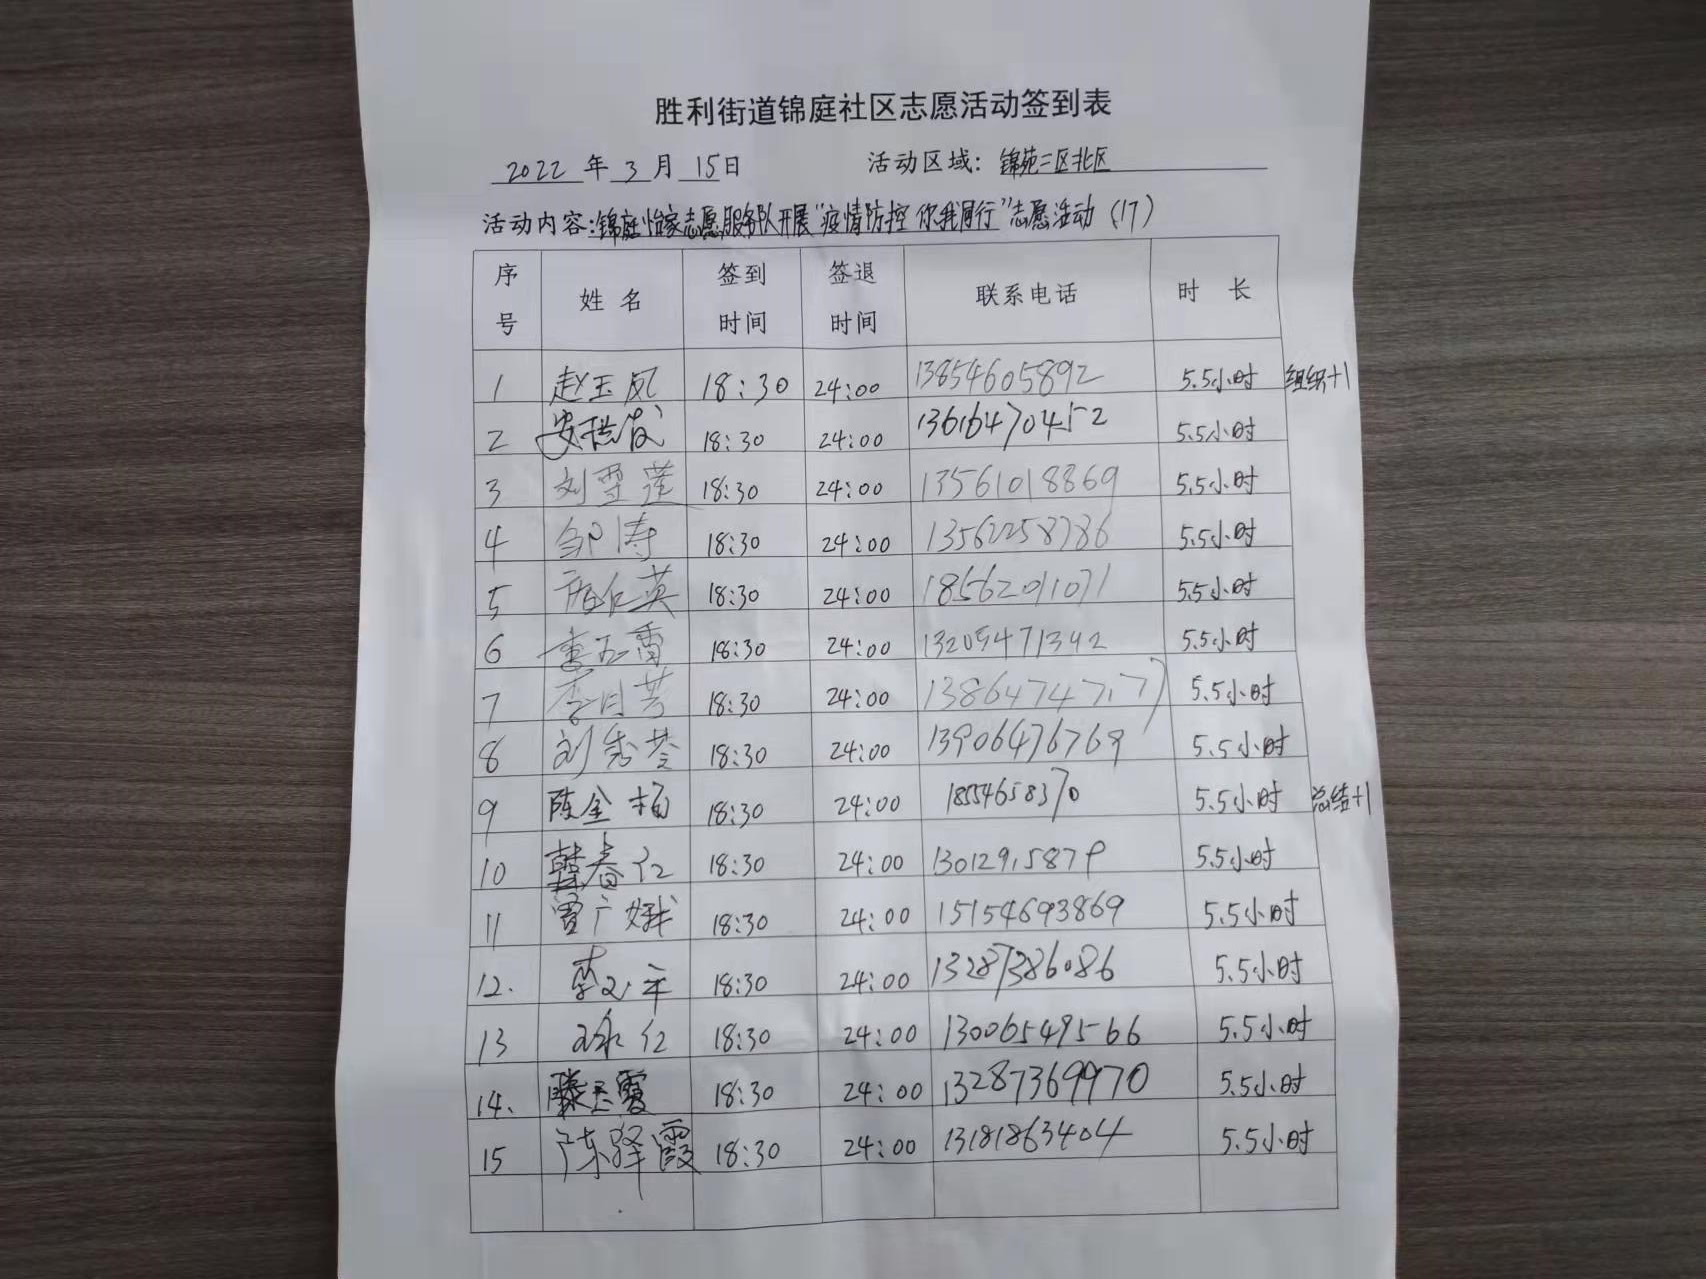 胜利街道锦庭社区志愿活动签到表
2022年3月15日 活动区域：锦苑二区北区
活动内容：锦庭怡家志愿服务队开展“疫情防控 你我同行”志愿活动（17）
序号 姓名 签到时间 签退时间 联系电话 时长
1 赵玉凤 18:30 24:00 13854605892 5.5小时 组织+1
2 18:30 24:00 13616470452 5.5小时
3 刘雪莲 18:30 24:00 13561018869 5.5小时
4 邹涛 18:30 24:00 13562258786 5.5小时
5 18:30 24:00 18562011071 5.5小时
6 18:30 24:00 13205471342 5.5小时
7 李月芳 18:30 24:00 5.5小时
8 刘秀芬 18:30 24:00 13906476769 5.5小时
9 陈金柏 18:30 24:00 18554658370 5.5小时 总结+1
10 韩春红 18:30 24:00 13012915879 5.5小时
11 曾广娥 18:30 24:00 15154693869 5.5小时
12. 李文平 18:30 24:00 13287386086 5.5小时
13 18:30 24:00 13006549566 5.5小时
14. 滕玉霞 18:30 24:00 13287369970 5.5小时
15 陈泽霞 18:30 24:00 13181863404 5.5小时